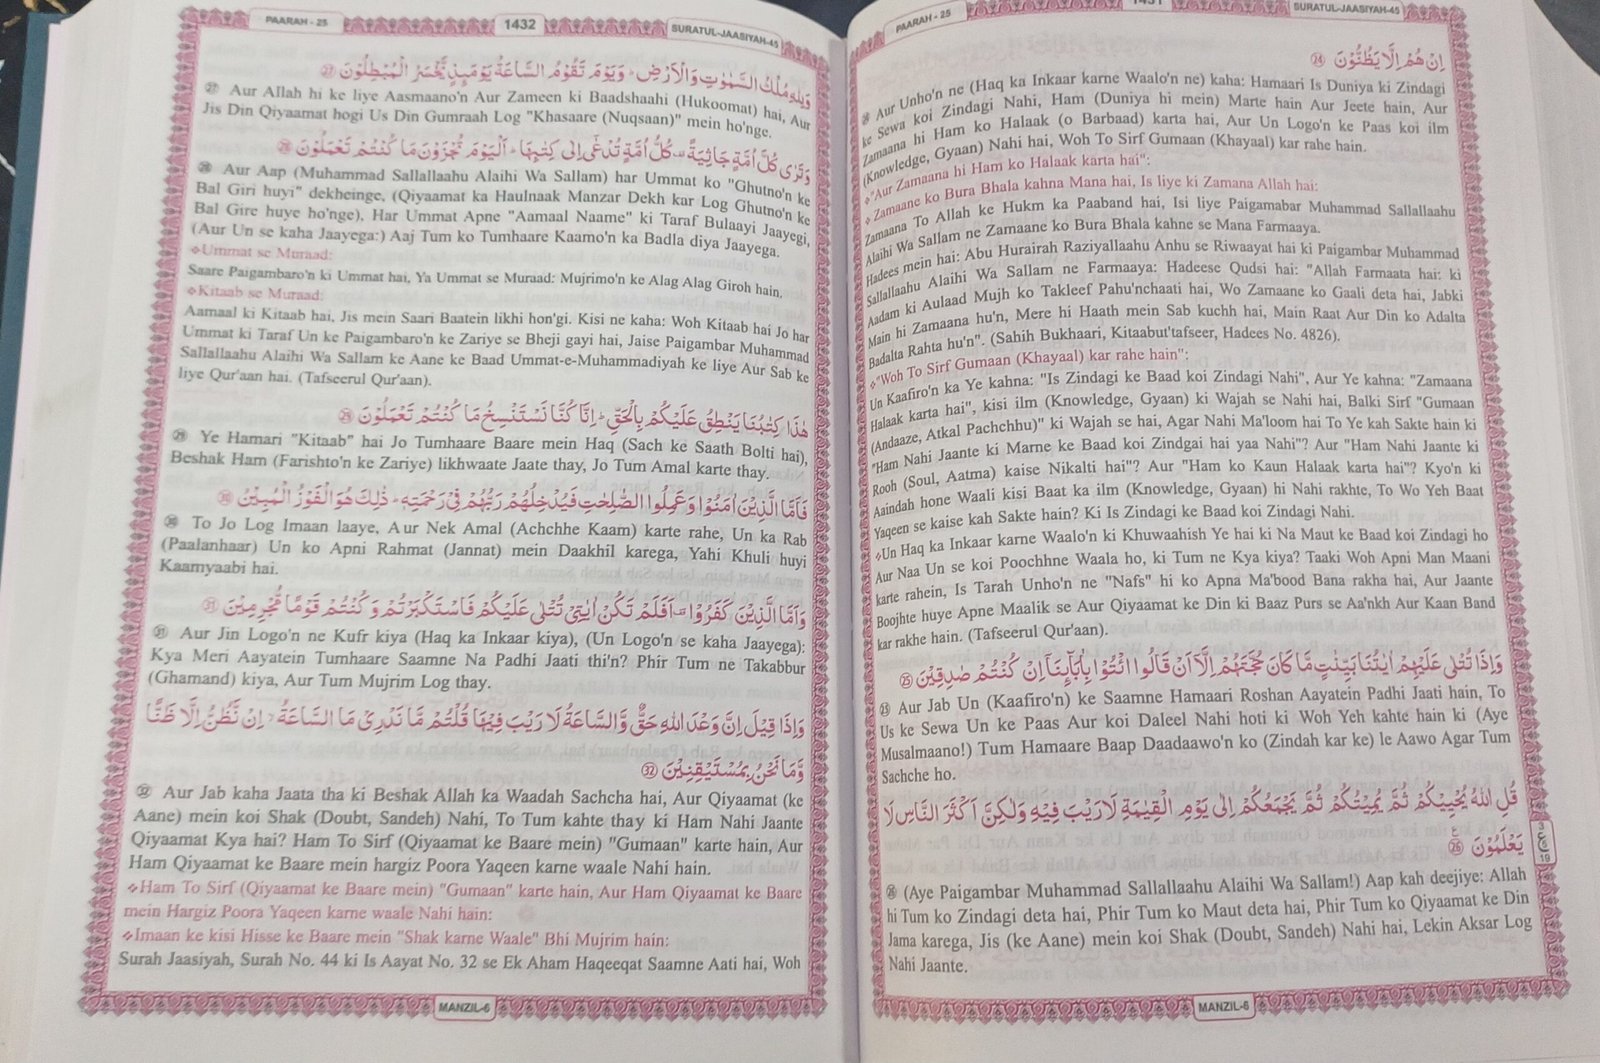 PAARAH - 25
SURATUL-JAASIYAH-45
اِنْ هُمْ اِلَّا يَظُنُّوْنَ ۲۴
Aur Unho'n ne (Haq ka Inkaar karne Waalo'n ne) kaha: Hamaari Is Duniya ki Zindagi
ke Sewa koi Zindagi Nahi, Ham (Duniya hi mein) Marte hain Aur Jeete hain, Aur
Zamaana hi Ham ko Halaak (o Barbaad) karta hai, Aur Un Logo'n ke Paas koi ilm
(Knowledge, Gyaan) Nahi hai, Woh To Sirf Gumaan (Khayaal) kar rahe hain.
❖"Aur Zamaana hi Ham ko Halaak karta hai":
❖ Zamaane ko Bura Bhala kahna Mana hai, Is liye ki Zamana Allah hai:
Zamaana To Allah ke Hukm ka Paaband hai, Isi liye Paigamabar Muhammad Sallallaahu
Alaihi Wa Sallam ne Zamaane ko Bura Bhala kahne se Mana Farmaaya.
Hadees mein hai: Abu Hurairah Raziyallaahu Anhu se Riwaayat hai ki Paigambar Muhammad
Sallallaahu Alaihi Wa Sallam ne Farmaaya: Hadeesc Qudsi hai: "Allah Farmaata hai: ki
Aadam ki Aulaad Mujh ko Takleef Pahu'nchaati hai, Wo Zamaane ko Gaali deta hai, Jabki
Main hi Zamaana hu'n, Mere hi Haath mein Sab kuchh hai, Main Raat Aur Din ko Adalta
Badalta Rahta hu'n". (Sahih Bukhaari, Kitaabut'tafseer, Hadees No. 4826).
❖"Woh To Sirf Gumaan (Khayaal) kar rahe hain":
Un Kaafiro'n ka Ye kahna: "Is Zindagi ke Baad koi Zindagi Nahi", Aur Ye kahna: "Zamaana
Halaak karta hai", kisi ilm (Knowledge, Gyaan) ki Wajah se Nahi hai, Balki Sirf "Gumaan
(Andaaze, Atkal Pachchhu)" ki Wajah se hai, Agar Nahi Ma'loom hai To Ye kah Sakte hain ki
"Ham Nahi Jaante ki Marne ke Baad koi Zindgai hai yaa Nahi"? Aur "Ham Nahi Jaante ki
Rooh (Soul, Aatma) kaise Nikalti hai"? Aur "Ham ko Kaun Halaak karta hai"? Kyo'n ki
Aaindah hone Waali kisi Baat ka ilm (Knowledge, Gyaan) hi Nahi rakhte, To Wo Yeh Baat
Yaqeen se kaise kah Sakte hain? Ki Is Zindagi ke Baad koi Zindagi Nahi.
❖Un Haq ka Inkaar karne Waalo'n ki Khuwaahish Ye hai ki Na Maut ke Baad koi Zindagi ho
Aur Naa Un se koi Poochhne Waala ho, ki Tum ne Kya kiya? Taaki Woh Apni Man Maani
karte rahein, Is Tarah Unho'n ne "Nafs" hi ko Apna Ma'bood Bana rakha hai, Aur Jaante
Boojhte huye Apne Maalik se Aur Qiyaamat ke Din ki Baaz Purs se Aa'nkh Aur Kaan Band
kar rakhe hain. (Tafseerul Qur'aan).
وَاِذَا تُتْلٰى عَلَيْهِمْ اٰيٰتُنَا بَيِّنٰتٍ مَّا كَانَ حُجَّتَهُمْ اِلَّآ اَنْ قَالُوا ائْتُوْا بِاٰبَآئِنَآ اِنْ كُنْتُمْ صٰدِقِيْنَ ۲۵
۲۵ Aur Jab Un (Kaafiro'n) ke Saamne Hamaari Roshan Aayatein Padhi Jaati hain, To
Us ke Sewa Un ke Paas Aur koi Daleel Nahi hoti ki Woh Yeh kahte hain ki (Aye
Musalmaano!) Tum Hamaare Baap Daadaawo'n ko (Zindah kar ke) le Aawo Agar Tum
Sachche ho.
قُلِ اللّٰهُ يُحْيِيْكُمْ ثُمَّ يُمِيْتُكُمْ ثُمَّ يَجْمَعُكُمْ اِلٰى يَوْمِ الْقِيٰمَةِ لَا رَيْبَ فِيْهِ وَلٰكِنَّ اَكْثَرَ النَّاسِ لَا
يَعْلَمُوْنَ ۲۶
۲۶ (Aye Paigambar Muhammad Sallallaahu Alaihi Wa Sallam!) Aap kah deejiye: Allah
hi Tum ko Zindagi deta hai, Phir Tum ko Maut deta hai, Phir Tum ko Qiyaamat ke Din
Jama karega, Jis (ke Aane) mein koi Shak (Doubt, Sandeh) Nahi hai, Lekin Aksar Log
Nahi Jaante.
MANZIL-6
PAARAH - 25
1432
SURATUL-JAASIYAH-45
وَلِلّٰهِ مُلْكُ السَّمٰوٰتِ وَالْاَرْضِ ؕ وَيَوْمَ تَقُوْمُ السَّاعَةُ يَوْمَئِذٍ يَّخْسَرُ الْمُبْطِلُوْنَ ۲۷
۲۷ Aur Allah hi ke liye Aasmaano'n Aur Zameen ki Baadshaahi (Hukoomat) hai, Aur
Jis Din Qiyaamat hogi Us Din Gumraah Log "Khasaare (Nuqsaan)" mein ho'nge.
وَتَرٰى كُلَّ اُمَّةٍ جَاثِيَةً ۫ كُلُّ اُمَّةٍ تُدْعٰٓى اِلٰى كِتٰبِهَا ؕ اَلْيَوْمَ تُجْزَوْنَ مَا كُنْتُمْ تَعْمَلُوْنَ ۲۸
۲۸ Aur Aap (Muhammad Sallallaahu Alaihi Wa Sallam) har Ummat ko "Ghutno'n ke
Bal Giri huyi" dekheinge, (Qiyaamat ka Haulnaak Manzar Dekh kar Log Ghutno'n ke
Bal Gire huye ho'nge), Har Ummat Apne "Aamaal Naame" ki Taraf Bulaayi Jaayegi,
(Aur Un se kaha Jaayega:) Aaj Tum ko Tumhaare Kaamo'n ka Badla diya Jaayega.
❖Ummat se Muraad:
Saare Paigambaro'n ki Ummat hai, Ya Ummat se Muraad: Mujrimo'n ke Alag Alag Giroh hain.
❖Kitaab se Muraad:
Aamaal ki Kitaab hai, Jis mein Saari Baatein likhi hon'gi. Kisi ne kaha: Woh Kitaab hai Jo har
Ummat ki Taraf Un ke Paigambaro'n ke Zariye se Bheji gayi hai, Jaise Paigambar Muhammad
Sallallaahu Alaihi Wa Sallam ke Aane ke Baad Ummat-e-Muhammadiyah ke liye Aur Sab ke
liye Qur'aan hai. (Tafseerul Qur'aan).
هٰذَا كِتٰبُنَا يَنْطِقُ عَلَيْكُمْ بِالْحَقِّ ؕ اِنَّا كُنَّا نَسْتَنْسِخُ مَا كُنْتُمْ تَعْمَلُوْنَ ۲۹
۲۹ Ye Hamari "Kitaab" hai Jo Tumhaare Baare mein Haq (Sach ke Saath Bolti hai),
Beshak Ham (Farishto'n ke Zariye) likhwaate Jaate thay, Jo Tum Amal karte thay.
فَاَمَّا الَّذِيْنَ اٰمَنُوْا وَعَمِلُوا الصّٰلِحٰتِ فَيُدْخِلُهُمْ رَبُّهُمْ فِيْ رَحْمَتِهٖ ؕ ذٰلِكَ هُوَ الْفَوْزُ الْمُبِيْنُ ۳۰
۳۰ To Jo Log Imaan laaye, Aur Nek Amal (Achchhe Kaam) karte rahe, Un ka Rab
(Paalanhaar) Un ko Apni Rahmat (Jannat) mein Daakhil karega, Yahi Khuli huyi
Kaamyaabi hai.
وَاَمَّا الَّذِيْنَ كَفَرُوْا ۫ اَفَلَمْ تَكُنْ اٰيٰتِيْ تُتْلٰى عَلَيْكُمْ فَاسْتَكْبَرْتُمْ وَكُنْتُمْ قَوْمًا مُّجْرِمِيْنَ ۳۱
۳۱ Aur Jin Logo'n ne Kufr kiya (Haq ka Inkaar kiya), (Un Logo'n se kaha Jaayega):
Kya Meri Aayatein Tumhaare Saamne Na Padhi Jaati thi'n? Phir Tum ne Takabbur
(Ghamand) kiya, Aur Tum Mujrim Log thay.
وَاِذَا قِيْلَ اِنَّ وَعْدَ اللّٰهِ حَقٌّ وَّالسَّاعَةُ لَا رَيْبَ فِيْهَا قُلْتُمْ مَّا نَدْرِيْ مَا السَّاعَةُ ۙ اِنْ نَّظُنُّ اِلَّا ظَنًّا
وَّمَا نَحْنُ بِمُسْتَيْقِنِيْنَ ۳۲
۳۲ Aur Jab kaha Jaata tha ki Beshak Allah ka Waadah Sachcha hai, Aur Qiyaamat (ke
Aane) mein koi Shak (Doubt, Sandeh) Nahi, To Tum kahte thay ki Ham Nahi Jaante
Qiyaamat Kya hai? Ham To Sirf (Qiyaamat ke Baare mein) "Gumaan" karte hain, Aur
Ham Qiyaamat ke Baare mein hargiz Poora Yaqeen karne waale Nahi hain.
❖Ham To Sirf (Qiyaamat ke Baare mein) "Gumaan" karte hain, Aur Ham Qiyaamat ke Baare
mein Hargiz Poora Yaqeen karne waale Nahi hain:
❖Imaan ke kisi Hisse ke Baare mein "Shak karne Waale" Bhi Mujrim hain:
Surah Jaasiyah, Surah No. 44 ki Is Aayat No. 32 se Ek Aham Haqeeqat Saamne Aati hai, Woh
MANZIL-6